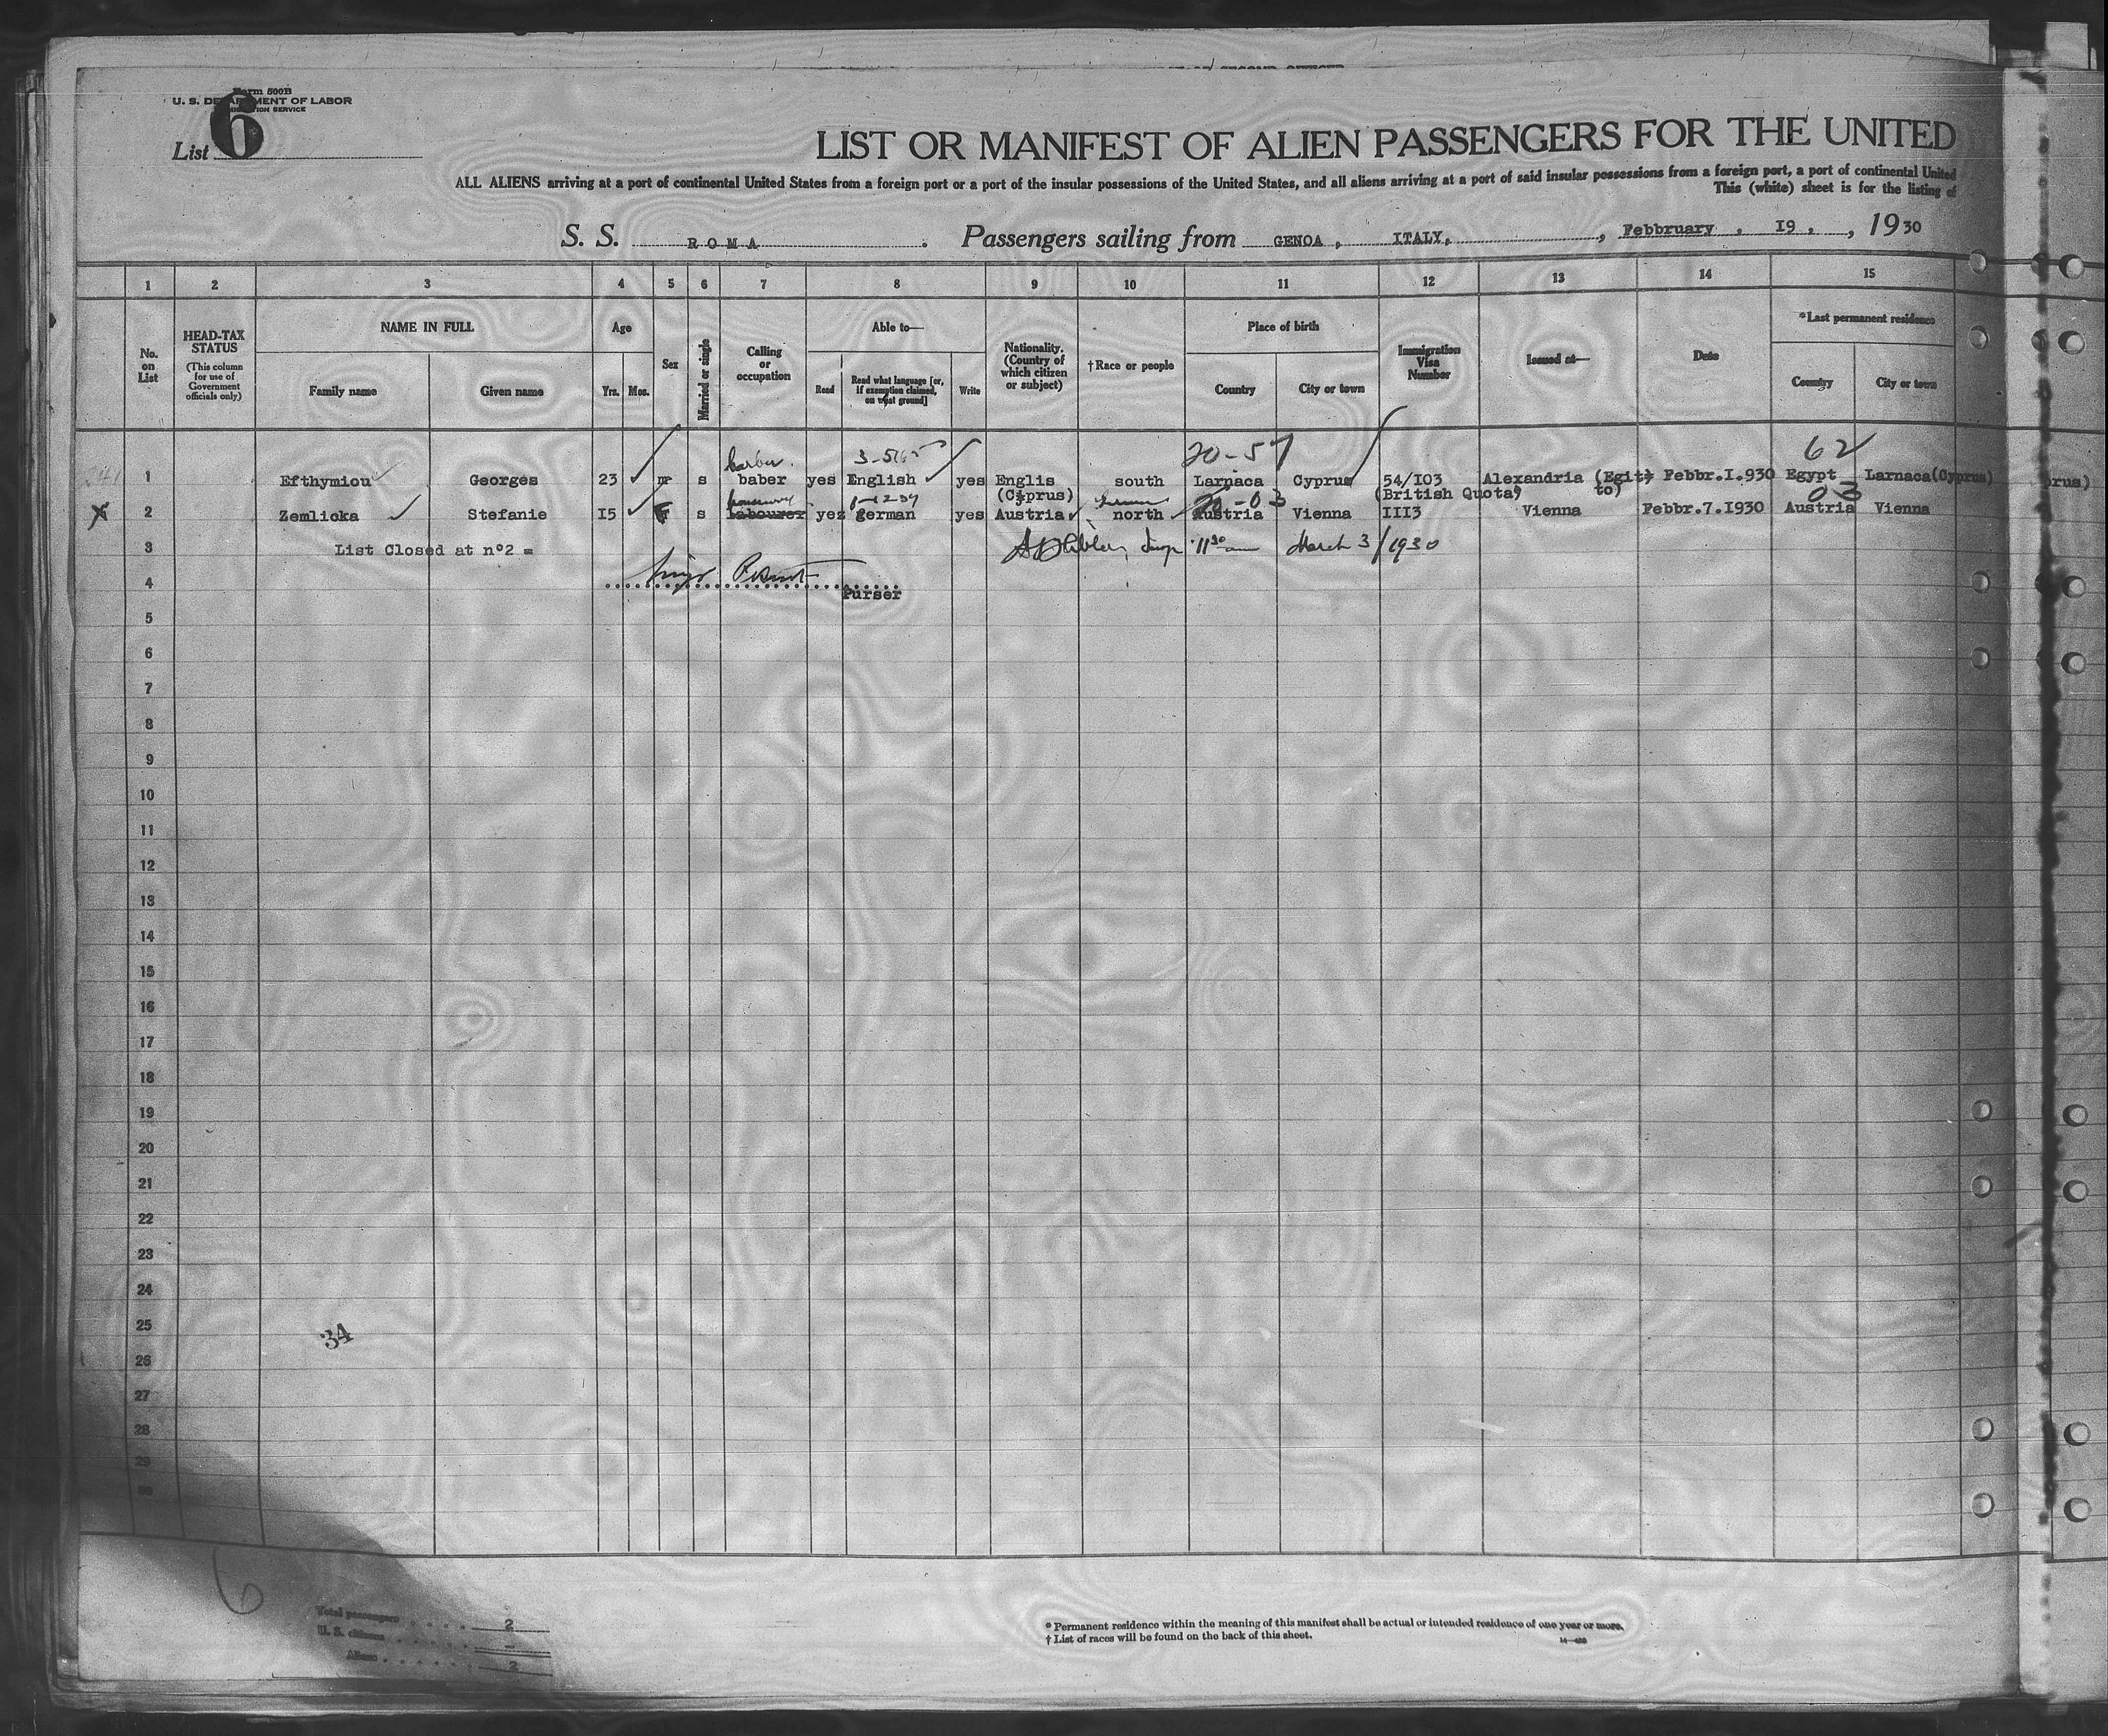 Form 500B
U. S. DEPARTMENT OF LABOR
IMMIGRATION SERVICE
List 6
LIST OR MANIFEST OF ALIEN PASSENGERS FOR THE UNITED
ALL ALIENS arriving at a port of continental United States from a foreign port or a port of the insular possessions of the United States, and all aliens arriving at a port of said insular possessions from a foreign port, a port of continental United
This (white) sheet is for the listing of
S. S. ROMA. Passengers sailing from GENOA, ITALY, Febbruary, 19, 1930
1 2 3 4 5 6 7 8 9 10 11 12 13 14 15
No. on List
HEAD-TAX STATUS
(This column for use of Government officials only)
NAME IN FULL
Family name Given name
Age
Yrs. Mos.
Sex
Married or single
Calling or occupation
Able to—
Read
Read what language [or, if exemption claimed, on what ground]
Write
Nationality. (Country of which citizen or subject)
†Race or people
Place of birth
Country City or town
Immigration Visa Number
Issued at—
Date
*Last permanent residence
Country City or town
barber 3-5165 20-57 62
1 Efthymiou Georges 23 m s baber yes English yes Englis south Larnaca Cyprus 54/I03 Alexandria (Egit) Febbr.I.930 Egypt Larnaca(Cyprus) prus)
(Cyprus) (British Quota) to)
03
2 Zemlicka Stefanie I5 F s labourer yes german yes Austria north Austria Vienna III3 Vienna Febbr.7.I930 Austria Vienna
3 List Closed at n°2 = 11 30 am March 3/1930
4
Purser
5
6
7
8
9
10
11
12
13
14
15
16
17
18
19
20
21
22
23
24
25
34
26
27
28
29
30
6
Total passengers 2
U. S. citizens –
Aliens 2
* Permanent residence within the meaning of this manifest shall be actual or intended residence of one year or more.
† List of races will be found on the back of this sheet.